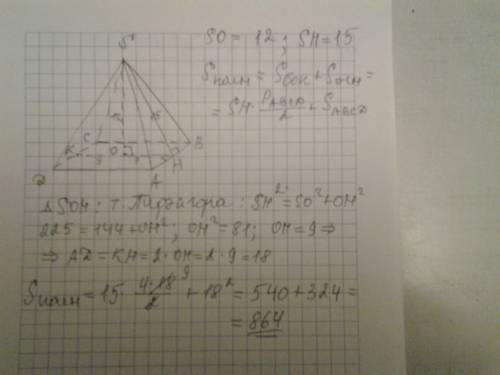 SO = 12 ; SH = 15
Sполн = Sбок + Sосн =
= SH · PABCD/2 + SABCD
S
C
B
O
K
H
D
A
12
15
9
Δ SOH : т. Пифагора : SH² = SO² + OH²
225 = 144 + OH² ; OH² = 81 ; OH = 9 ⇒
⇒ AD = KH = 2 · OH = 2 · 9 = 18
Sполн = 15 · 4·18/2 + 18² = 540 + 324 =
9
= 864